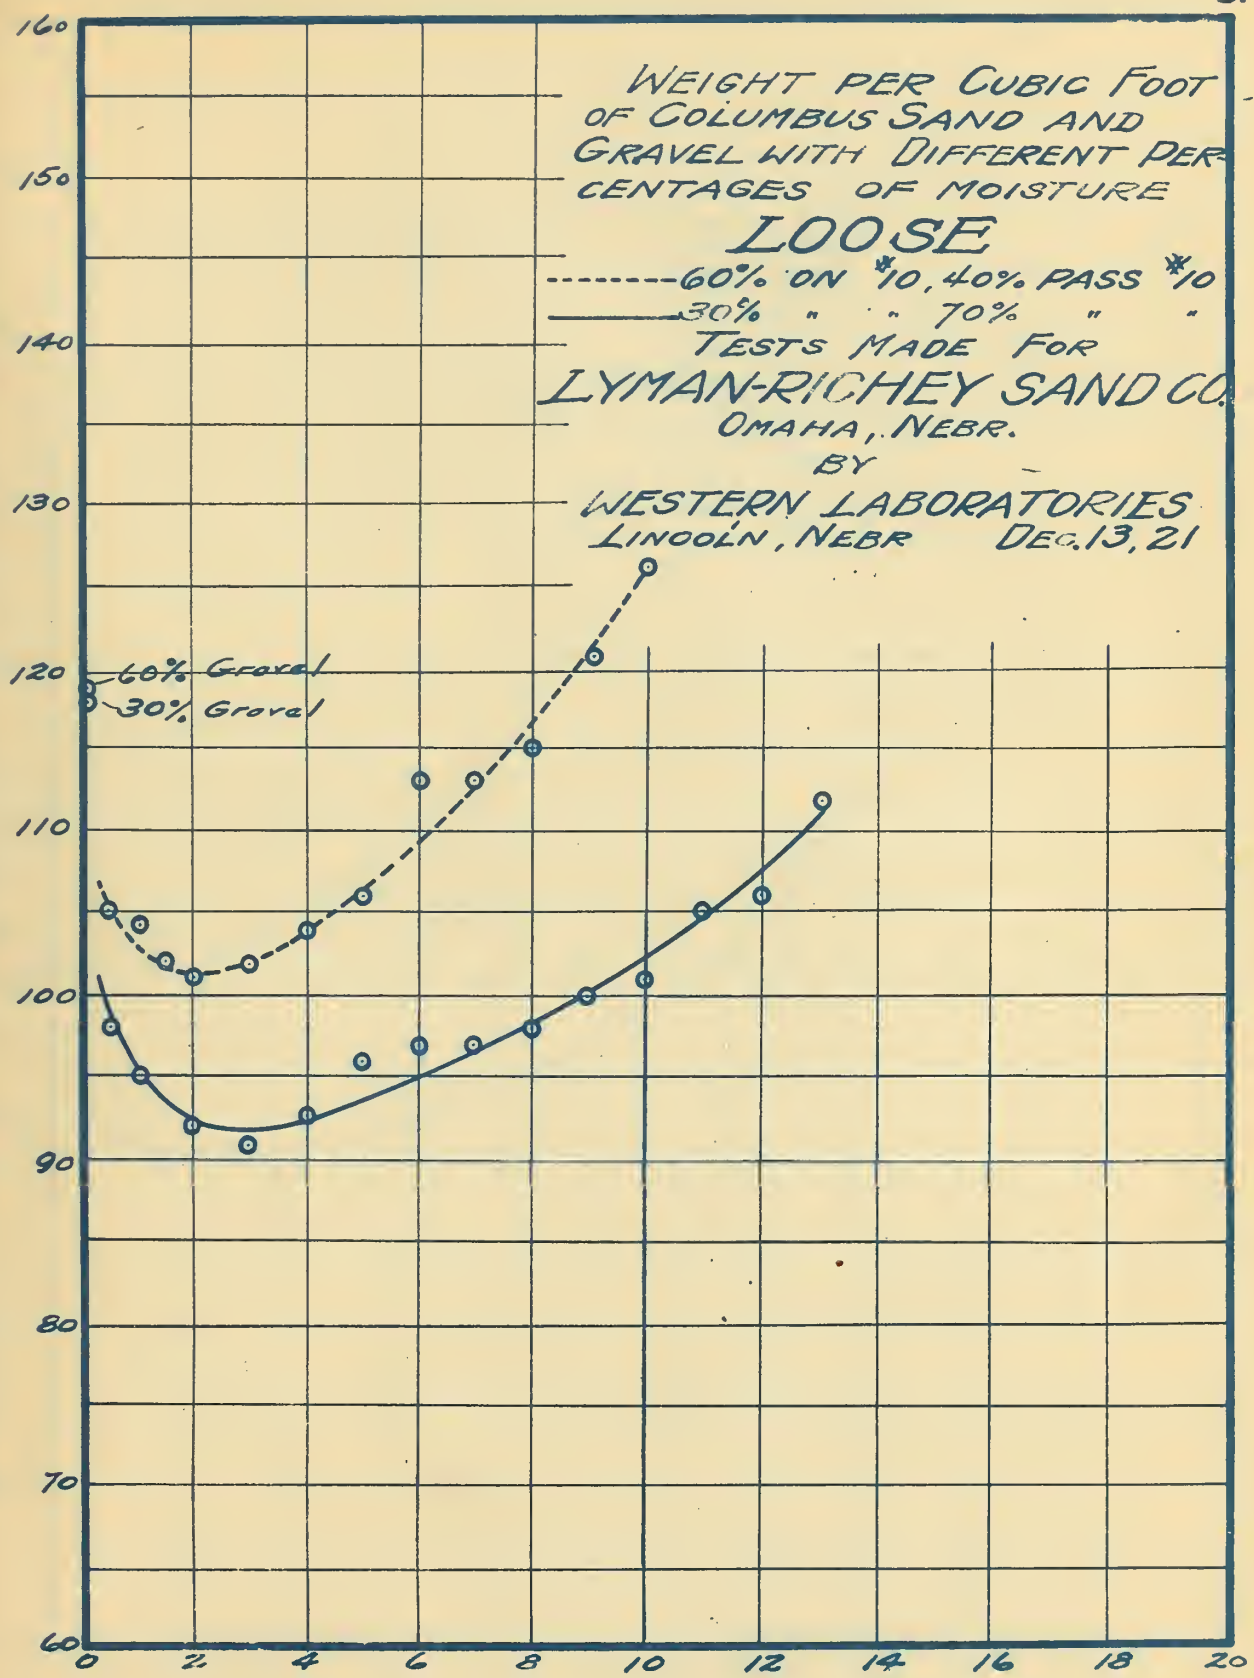 160
WEIGHT PER CUBIC FOOT
OF COLUMBUS SAND AND
GRAVEL WITH DIFFERENT PER-
CENTAGES OF MOISTURE
LOOSE
60% ON #10, 40% PASS #10
30% " " 70% " "
TESTS MADE FOR
LYMAN-RICHEY SAND CO.
OMAHA, NEBR.
BY
WESTERN LABORATORIES
LINCOLN, NEBR DEC. 13, 21
150
140
130
120
60% Gravel
30% Gravel
110
100
90
80
70
60
0 2 4 6 8 10 12 14 16 18 20